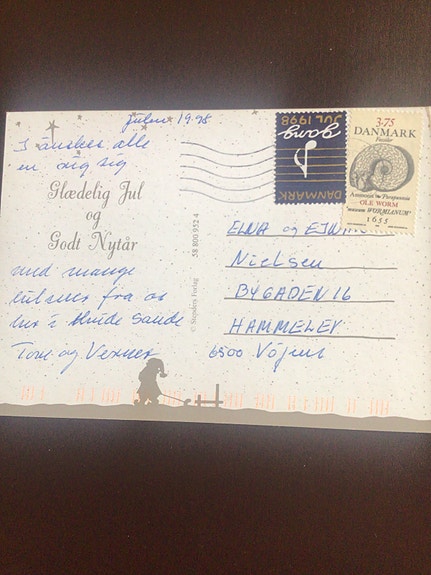 Julen 1998
I ønskes alle
en rig sig
Glædelig Jul
og
Godt Nytår
med mange
hilsner fra os
her i Hvide Sande
Tove og Verner
© Stenders Forlag
58 800 952 4
DANMARK
JUL 1998
3.75
DANMARK
Fossiler
OLE WORM
"MUSEUM WORMIANUM"
1655
ELNA og EJNAR
Nielsen
BYGADEN 16
HAMMELEV
6500 Vojens